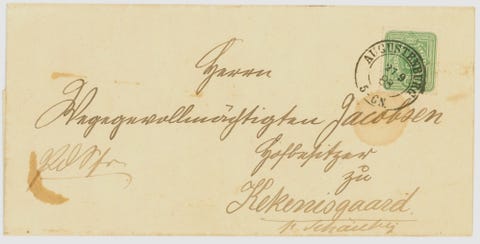 AUGUSTENBURG
27 9
5-6N.
Herrn
Wegegevollmächtigten Jacobsen
Hofbesitzer
zu
Kekenisgaard
p. Schauby